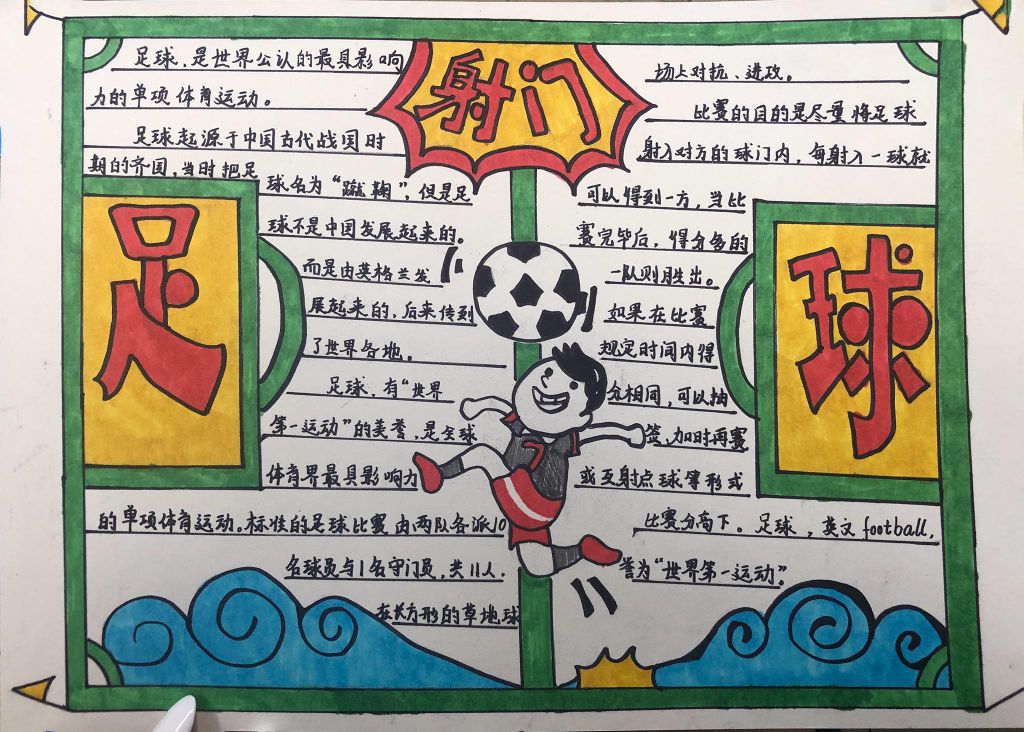 射门
足
球
足球，是世界公认的最具影响
力的单项体育运动。
足球起源于中国古代战国时
期的齐国，当时把足
球名为“蹴鞠”，但是足
球不是中国发展起来的。
而是由英格兰发
展起来的，后来传到
了世界各地。
足球，有“世界
第一运动”的美誉，是全球
体育界最具影响力
的单项体育运动。标准的足球比赛由两队各派10
名球员与1名守门员，共11人.
在长方形的草地球
场上对抗、进攻。
比赛的目的是尽量将足球
射入对方的球门内，每射入一球就
可以得到一分，当比
赛完毕后，得分多的
一队则胜出。
如果在比赛
规定时间内得
分相同，可以抽
签，加时再赛
或互射点球等形式
比赛分高下。足球，英文football，
誉为“世界第一运动”。
7